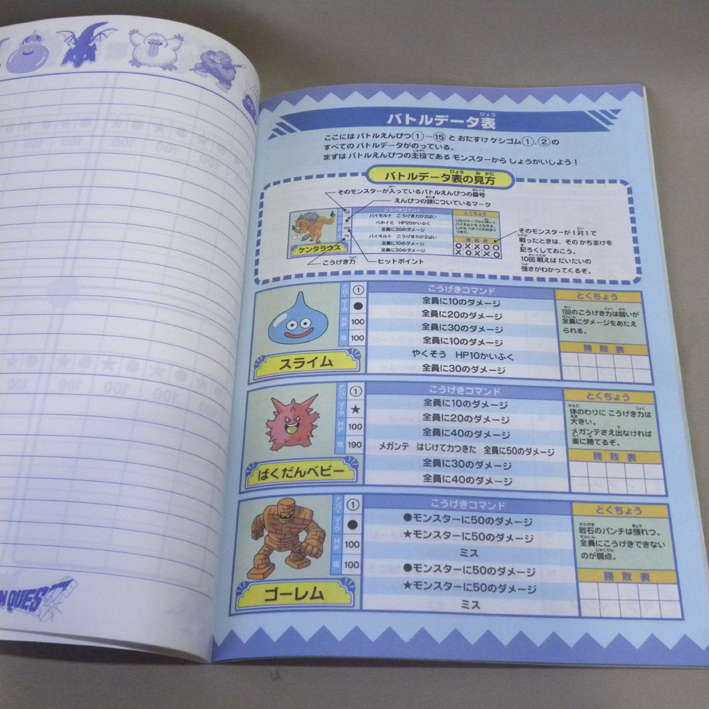 バトルデータ表
ひょう
ここには バトルえんぴつ①―⑮と おたすけケシゴム①、②の
すべての バトルデータがのっている。
まずは バトルえんぴつの主役である モンスターから しょうかいしよう！
バトルデータ表の見方
そのモンスターが入っているバトルえんぴつの番号
えんぴつの頭についているマーク
こうげきコマンド
バイキルト こうげき力が2ばい
ベホイミ HP20かいふく
全員に30のダメージ
バイキルト こうげき力が2ばい
全員に10のダメージ
全員に30のダメージ
ケンタラウス
こうげき力
ヒットポイント
そのモンスターが1対1で
戦ったときは、そのかちまけを
記ろくしておこう。
10回戦えば だいたいの
強さがわかってくるぞ。
こうげきコマンド
全員に10のダメージ
全員に20のダメージ
全員に30のダメージ
全員に10のダメージ
やくそう HP10かいふく
全員に30のダメージ
①
●
HP
100
100
スライム
とくちょう
1回のこうげき力は弱いが
全員にダメージをあたえ
られる。
勝敗表
こうげきコマンド
全員に10のダメージ
全員に20のダメージ
全員に40のダメージ
メガンテ はじけて力つきた 全員に50のダメージ
全員に30のダメージ
全員に40のダメージ
①
★
HP
100
190
ばくだんベビー
とくちょう
体のわりに こうげき力は
大きい。
メガンテさえ出なければ
楽に勝てるぞ。
勝敗表
こうげきコマンド
●モンスターに50のダメージ
★モンスターに50のダメージ
ミス
●モンスターに50のダメージ
★モンスターに50のダメージ
ミス
①
●
HP
100
100
ゴーレム
とくちょう
岩石のパンチは強れつ。
全員にこうげきできない
のが弱点。
勝敗表
N QUES